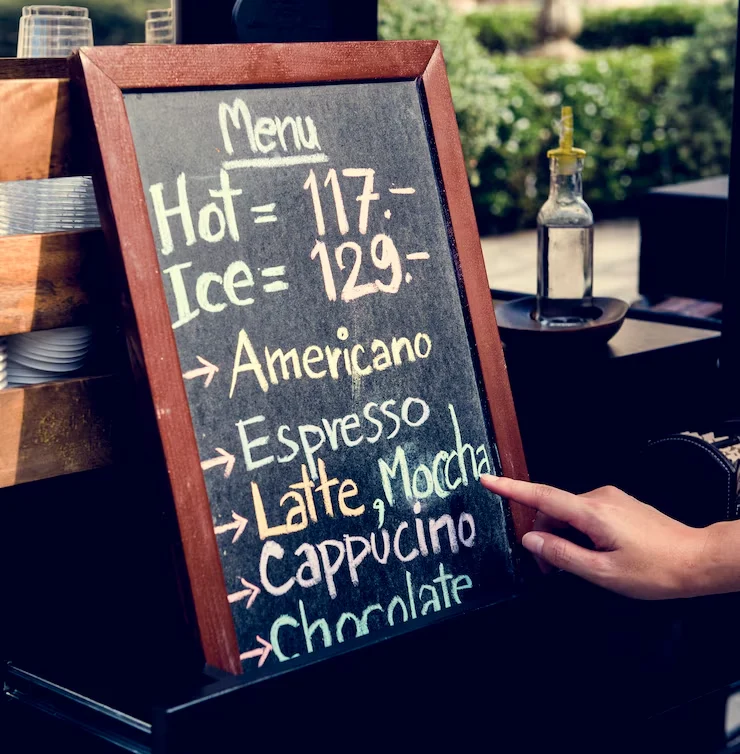 Menu
Hot = 117.-
Ice = 129.-
→ Americano
→ Espresso
→ Latte, Moccha
→ Cappucino
→ Chocolate